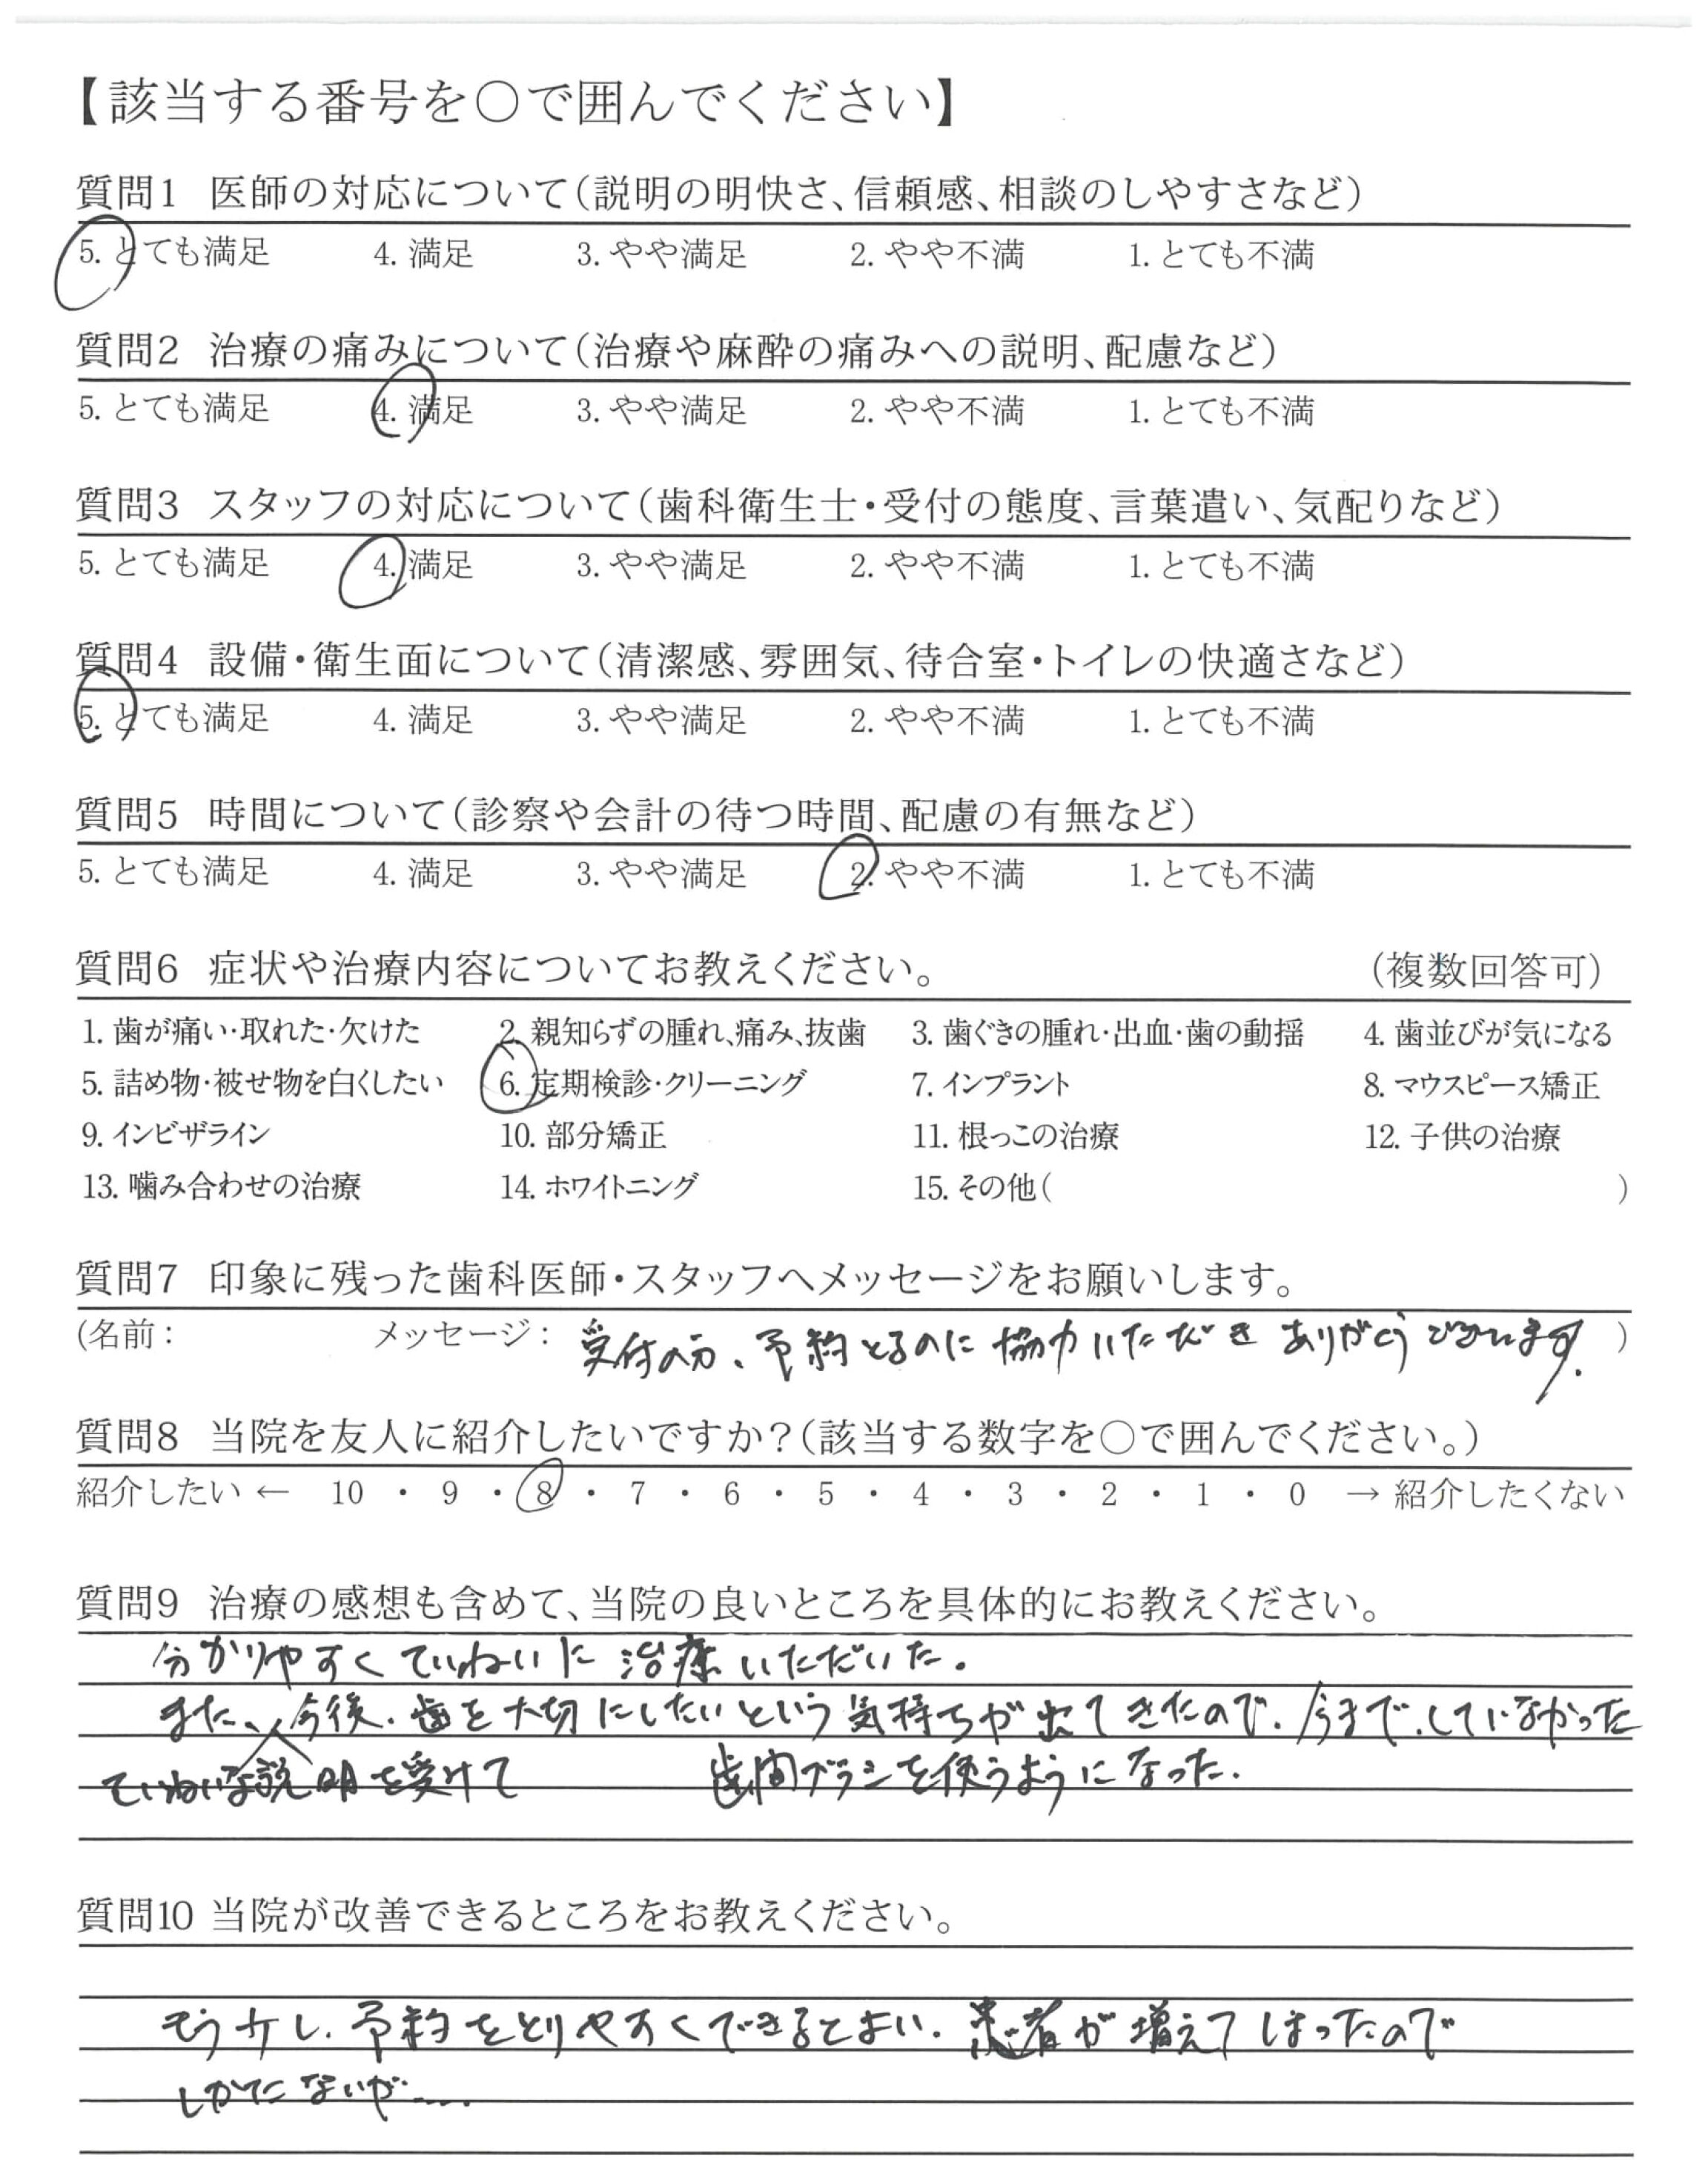 【該当する番号を〇で囲んでください】
質問1 医師の対応について(説明の明快さ、信頼感、相談のしやすさなど)
5. とても満足 4. 満足 3. やや満足 2. やや不満 1. とても不満
質問2 治療の痛みについて(治療や麻酔の痛みへの説明、配慮など)
5. とても満足 4. 満足 3. やや満足 2. やや不満 1. とても不満
質問3 スタッフの対応について(歯科衛生士・受付の態度、言葉遣い、気配りなど)
5. とても満足 4. 満足 3. やや満足 2. やや不満 1. とても不満
質問4 設備・衛生面について(清潔感、雰囲気、待合室・トイレの快適さなど)
5. とても満足 4. 満足 3. やや満足 2. やや不満 1. とても不満
質問5 時間について(診察や会計の待つ時間、配慮の有無など)
5. とても満足 4. 満足 3. やや満足 2. やや不満 1. とても不満
質問6 症状や治療内容についてお教えください。 (複数回答可)
1. 歯が痛い・取れた・欠けた 2. 親知らずの腫れ、痛み、抜歯 3. 歯ぐきの腫れ・出血・歯の動揺 4. 歯並びが気になる
5. 詰め物・被せ物を白くしたい 6. 定期検診・クリーニング 7. インプラント 8. マウスピース矯正
9. インビザライン 10. 部分矯正 11. 根っこの治療 12. 子供の治療
13. 噛み合わせの治療 14. ホワイトニング 15. その他( )
質問7 印象に残った歯科医師・スタッフへメッセージをお願いします。
(名前： メッセージ： 受付の方、予約とるのに協力いただき ありがとうございます。 )
質問8 当院を友人に紹介したいですか？(該当する数字を〇で囲んでください。)
紹介したい ← 10 ・ 9 ・ 8 ・ 7 ・ 6 ・ 5 ・ 4 ・ 3 ・ 2 ・ 1 ・ 0 → 紹介したくない
質問9 治療の感想も含めて、当院の良いところを具体的にお教えください。
分かりやすく ていねいに 治療いただいた。
また、今後、歯を大切にしたいという気持ちが出てきたので、今まで、していなかった
ていねいな説明を受けて 歯間ブラシを使うようになった。
質問10 当院が改善できるところをお教えください。
もう少し、予約をとりやすくできるとよい。患者が増えてしまったので
しかたないが……